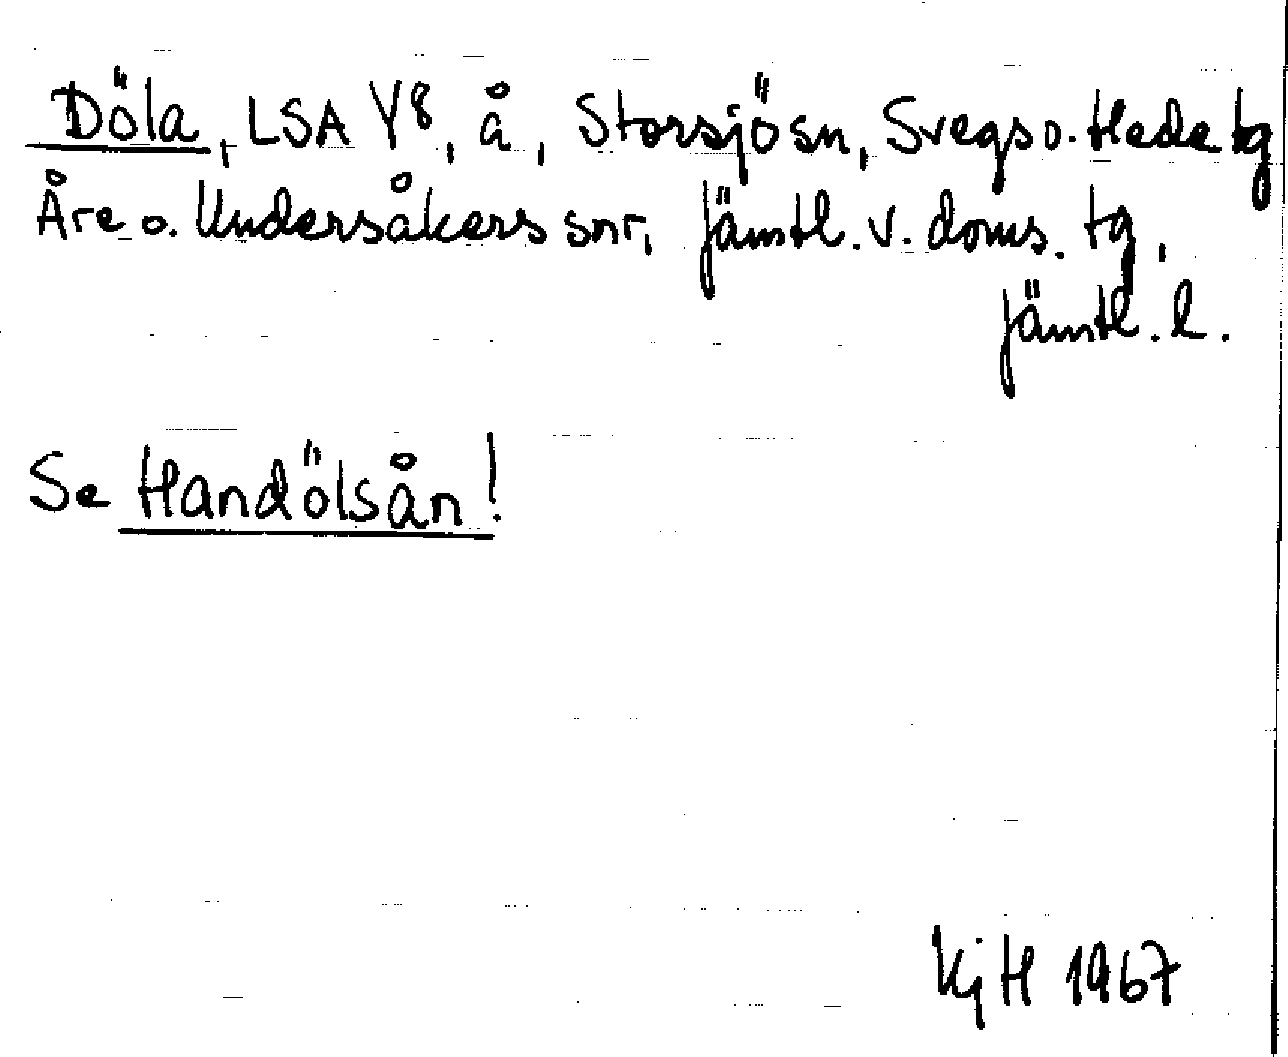 Döla, LSA Y8, å, Storsjö sn, Svegs o. Hede tg
Åre o. Undersåkers snr, Jämtl. v. doms. tg,
Jämtl. l.
Se Handölsån!
KjH 1967